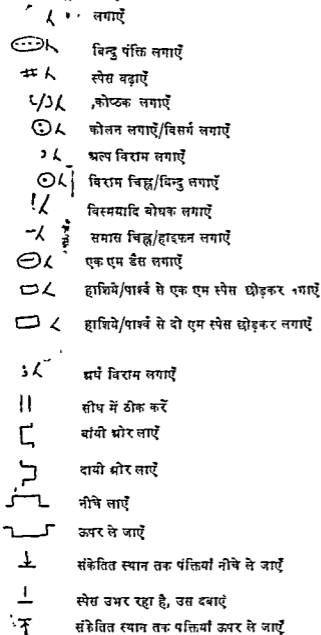 लगाएँ
बिन्दु पंक्ति लगाएँ
# स्पेस बढ़ाएँ
,कोष्ठक लगाएँ
कोलन लगाएँ/विसर्ग लगाएँ
अल्प विराम लगाएँ
विराम चिह्न/बिन्दु लगाएँ
! विस्मयादि बोधक लगाएँ
समास चिह्न/हाइफन लगाएँ
एक एम डैस लगाएँ
हाशिये/पार्श्व से एक एम स्पेस छोड़कर
हाशिये/पार्श्व से दो एम स्पेस छोड़कर लगाएँ
अर्ध विराम लगाएँ
सीध में ठीक करें
बांयी ओर लाएँ
दायी ओर लाएँ
नीचे लाएँ
ऊपर ले जाएँ
संकेतित स्थान तक पंक्तियाँ नीचे ले जाएँ
स्पेस उभर रहा है, उस दबाएं
संकेतित स्थान तक पंक्तियाँ ऊपर ले जाएँ